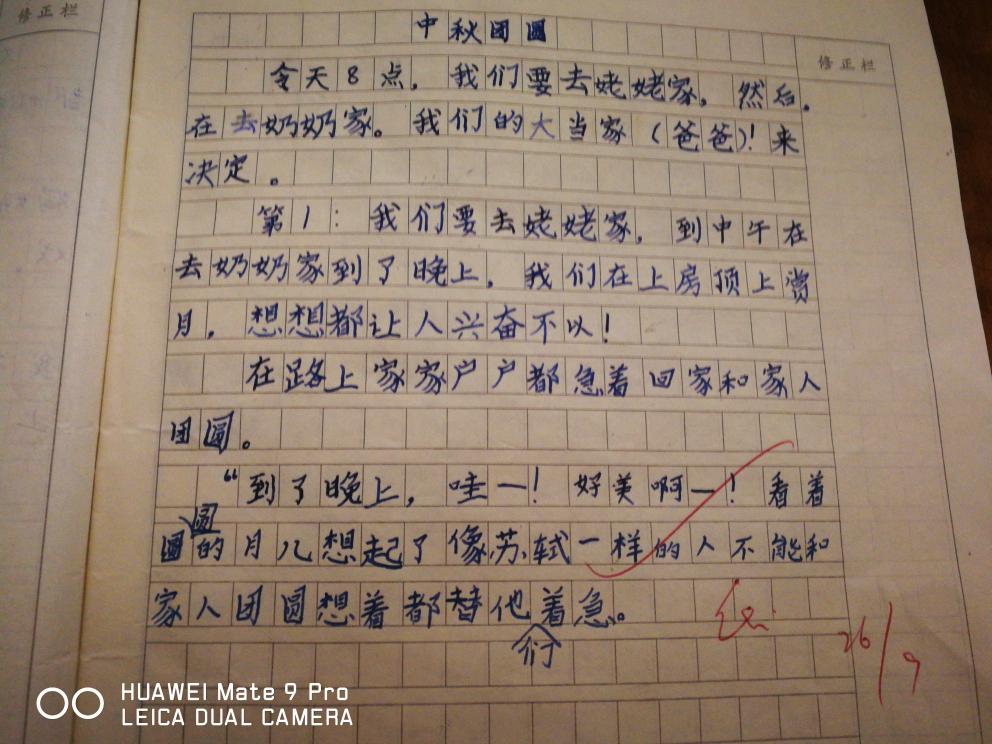 修正栏
修正栏
中秋团圆
今天8点，我们要去姥姥家，然后，
在去奶奶家。我们的大当家（爸爸）！来
决定。
第1：我们要去姥姥家，到中午在
去奶奶家到了晚上，我们在上房顶上赏
月，想想都让人兴奋不以！
在路上家家户户都急着回家和家人
团圆。
“到了晚上，哇一！好美啊一！看着
圆
圆的月儿想起了像苏轼一样的人不能和
家人团圆想着都替他着急。
们
26/9
HUAWEI Mate 9 Pro
LEICA DUAL CAMERA